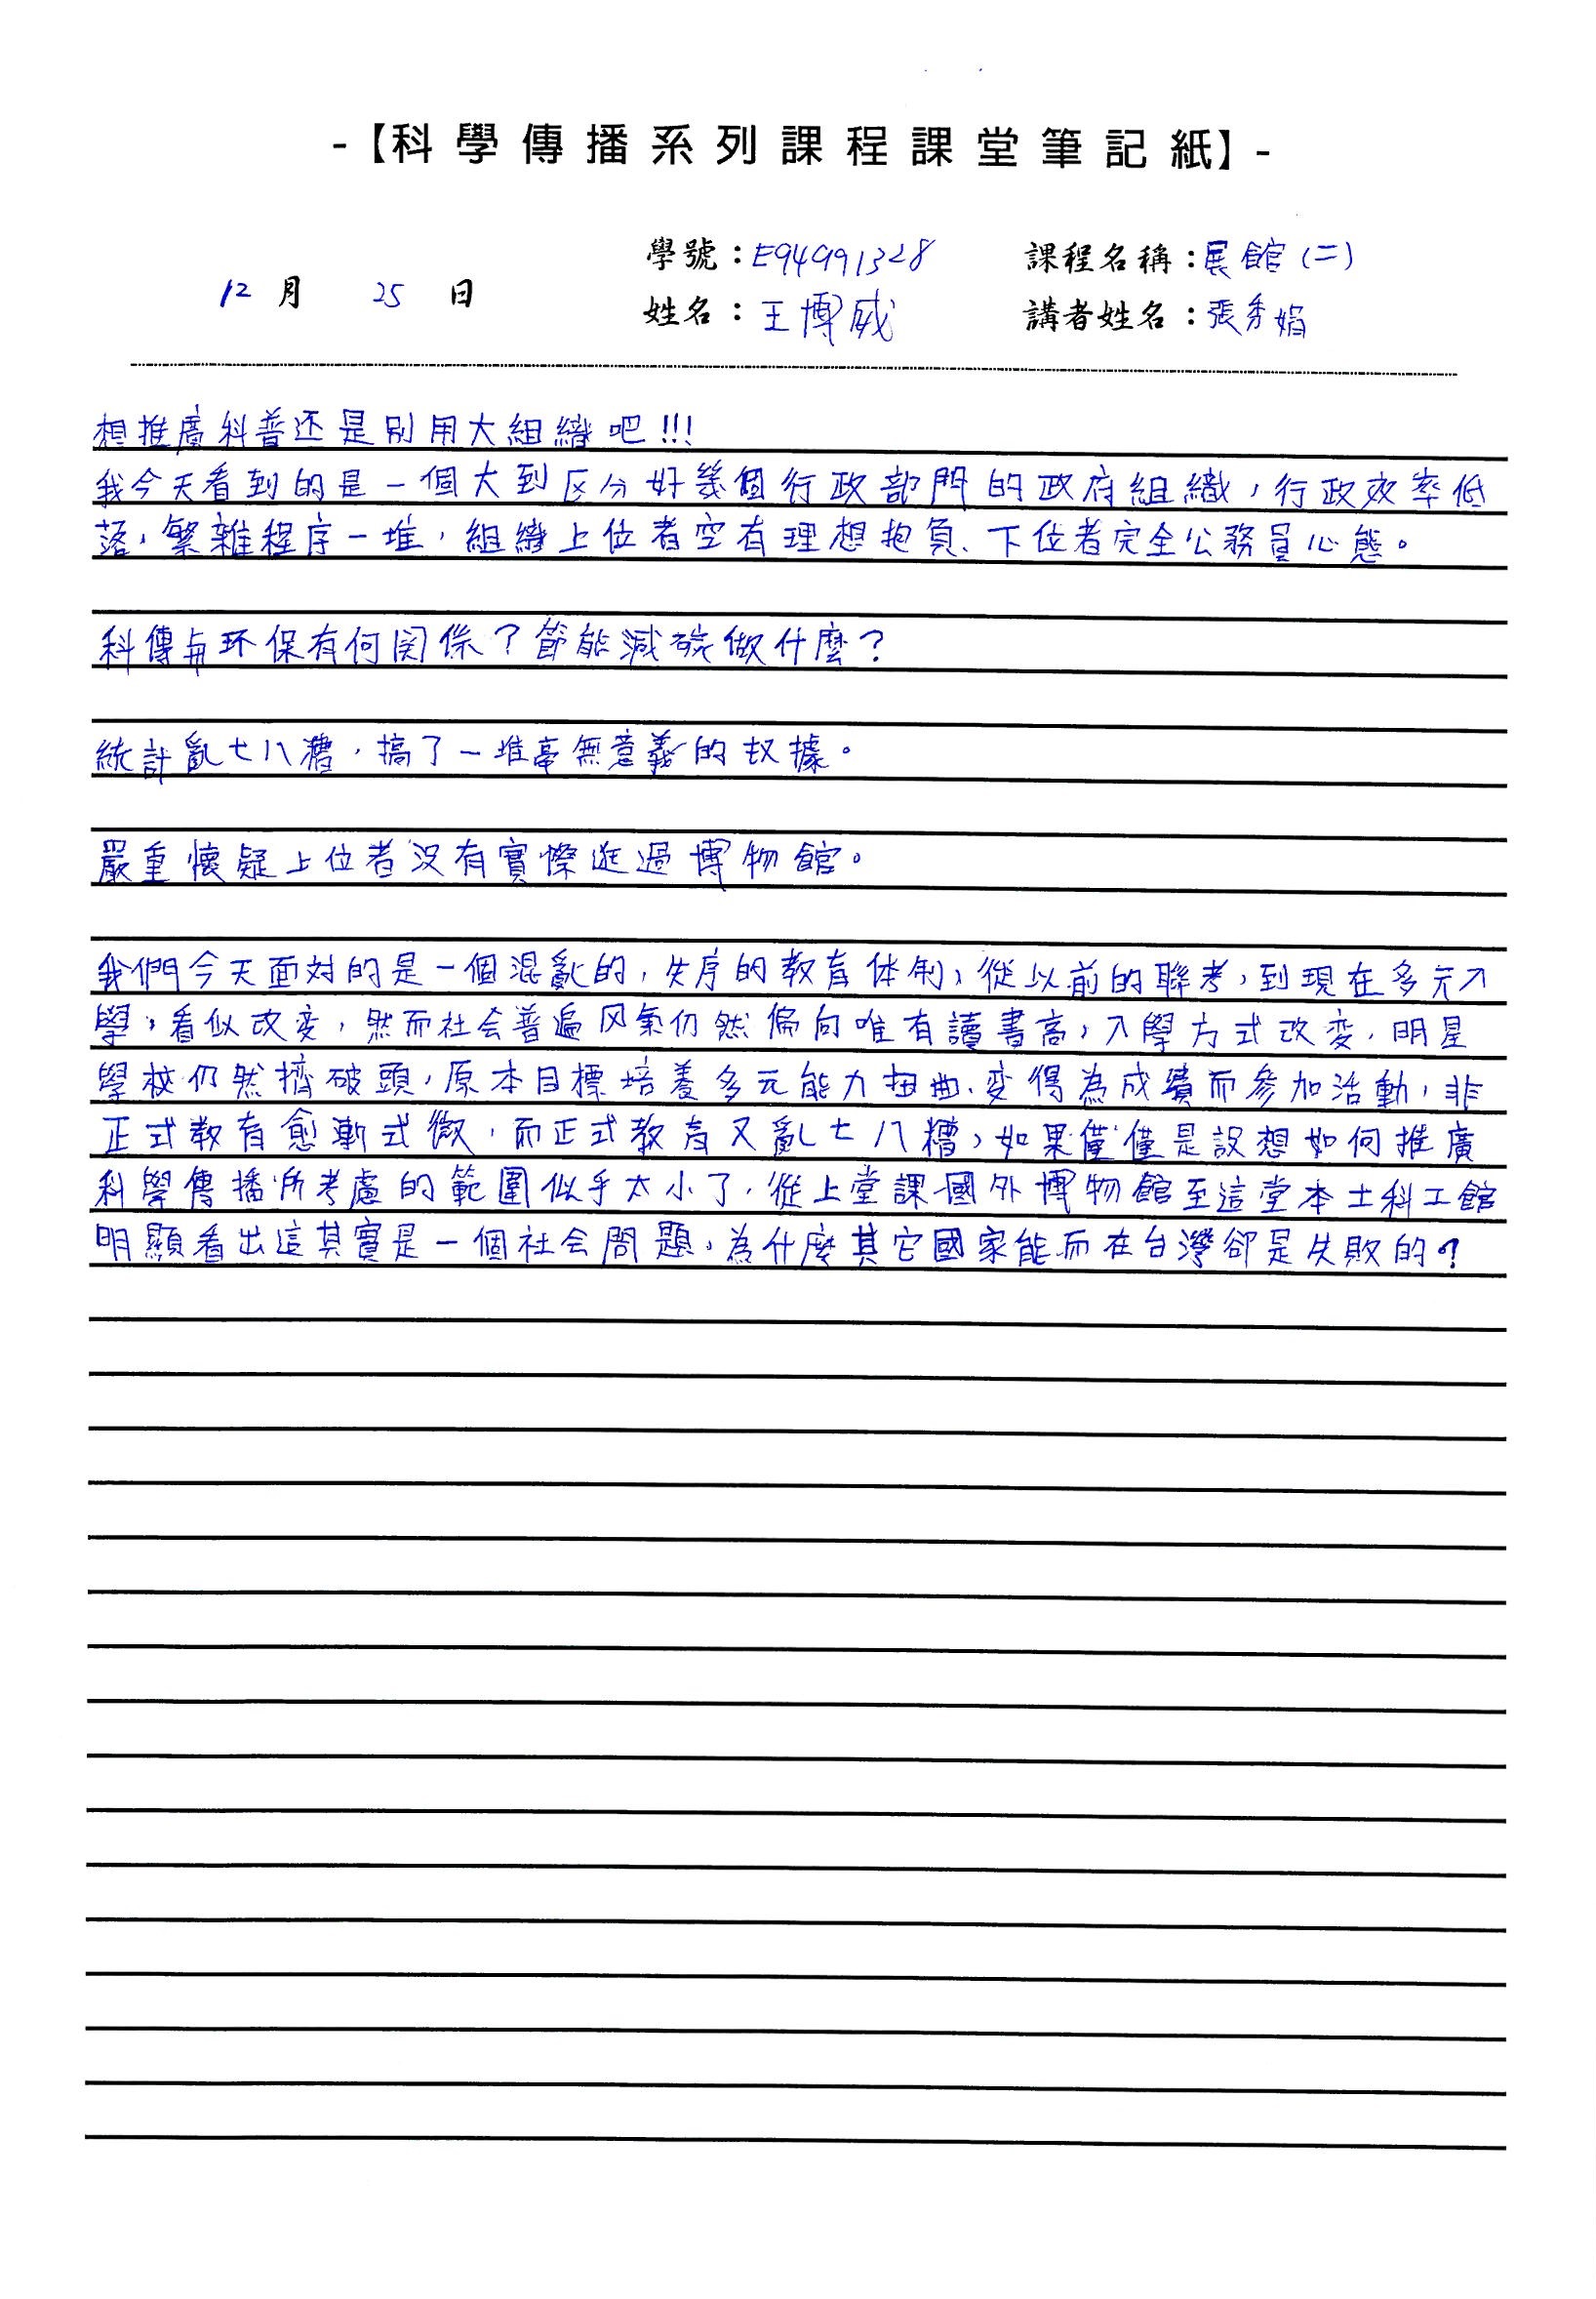 -【科學傳播系列課程課堂筆記紙】-
學號：E94991328 課程名稱：展館(二)
12 月 25 日
姓名：王博威 講者姓名：張秀娟
想推廣科普还是別用大組織吧!!!
我今天看到的是一個大到区分好幾個行政部門的政府組織，行政效率低
落，繁雜程序一堆，組織上位者空有理想抱負、下位者完全公務員心態。
科傳與环保有何関係？節能減碳做什麼？
統計亂七八糟，搞了一堆毫無意義的奴據。
嚴重懷疑上位者沒有實際逛過博物館。
我們今天面对的是一個混亂的，失序的教育体制，從以前的聯考，到現在多元入
學，看似改变，然而社会普遍风氣仍然偏向唯有讀書高，入學方式改变，明星
學校仍然擠破頭，原本目標培養多元能力扭曲、变得為成績而參加活動，非
正式教育愈漸式微，而正式教育又亂七八糟，如果僅僅是設想如何推廣
科學傳播所考慮的範圍似乎太小了，從上堂課國外博物館至這堂本土科工館
明顯看出這其實是一個社会問題，為什麼其它國家能而在台灣卻是失敗的？